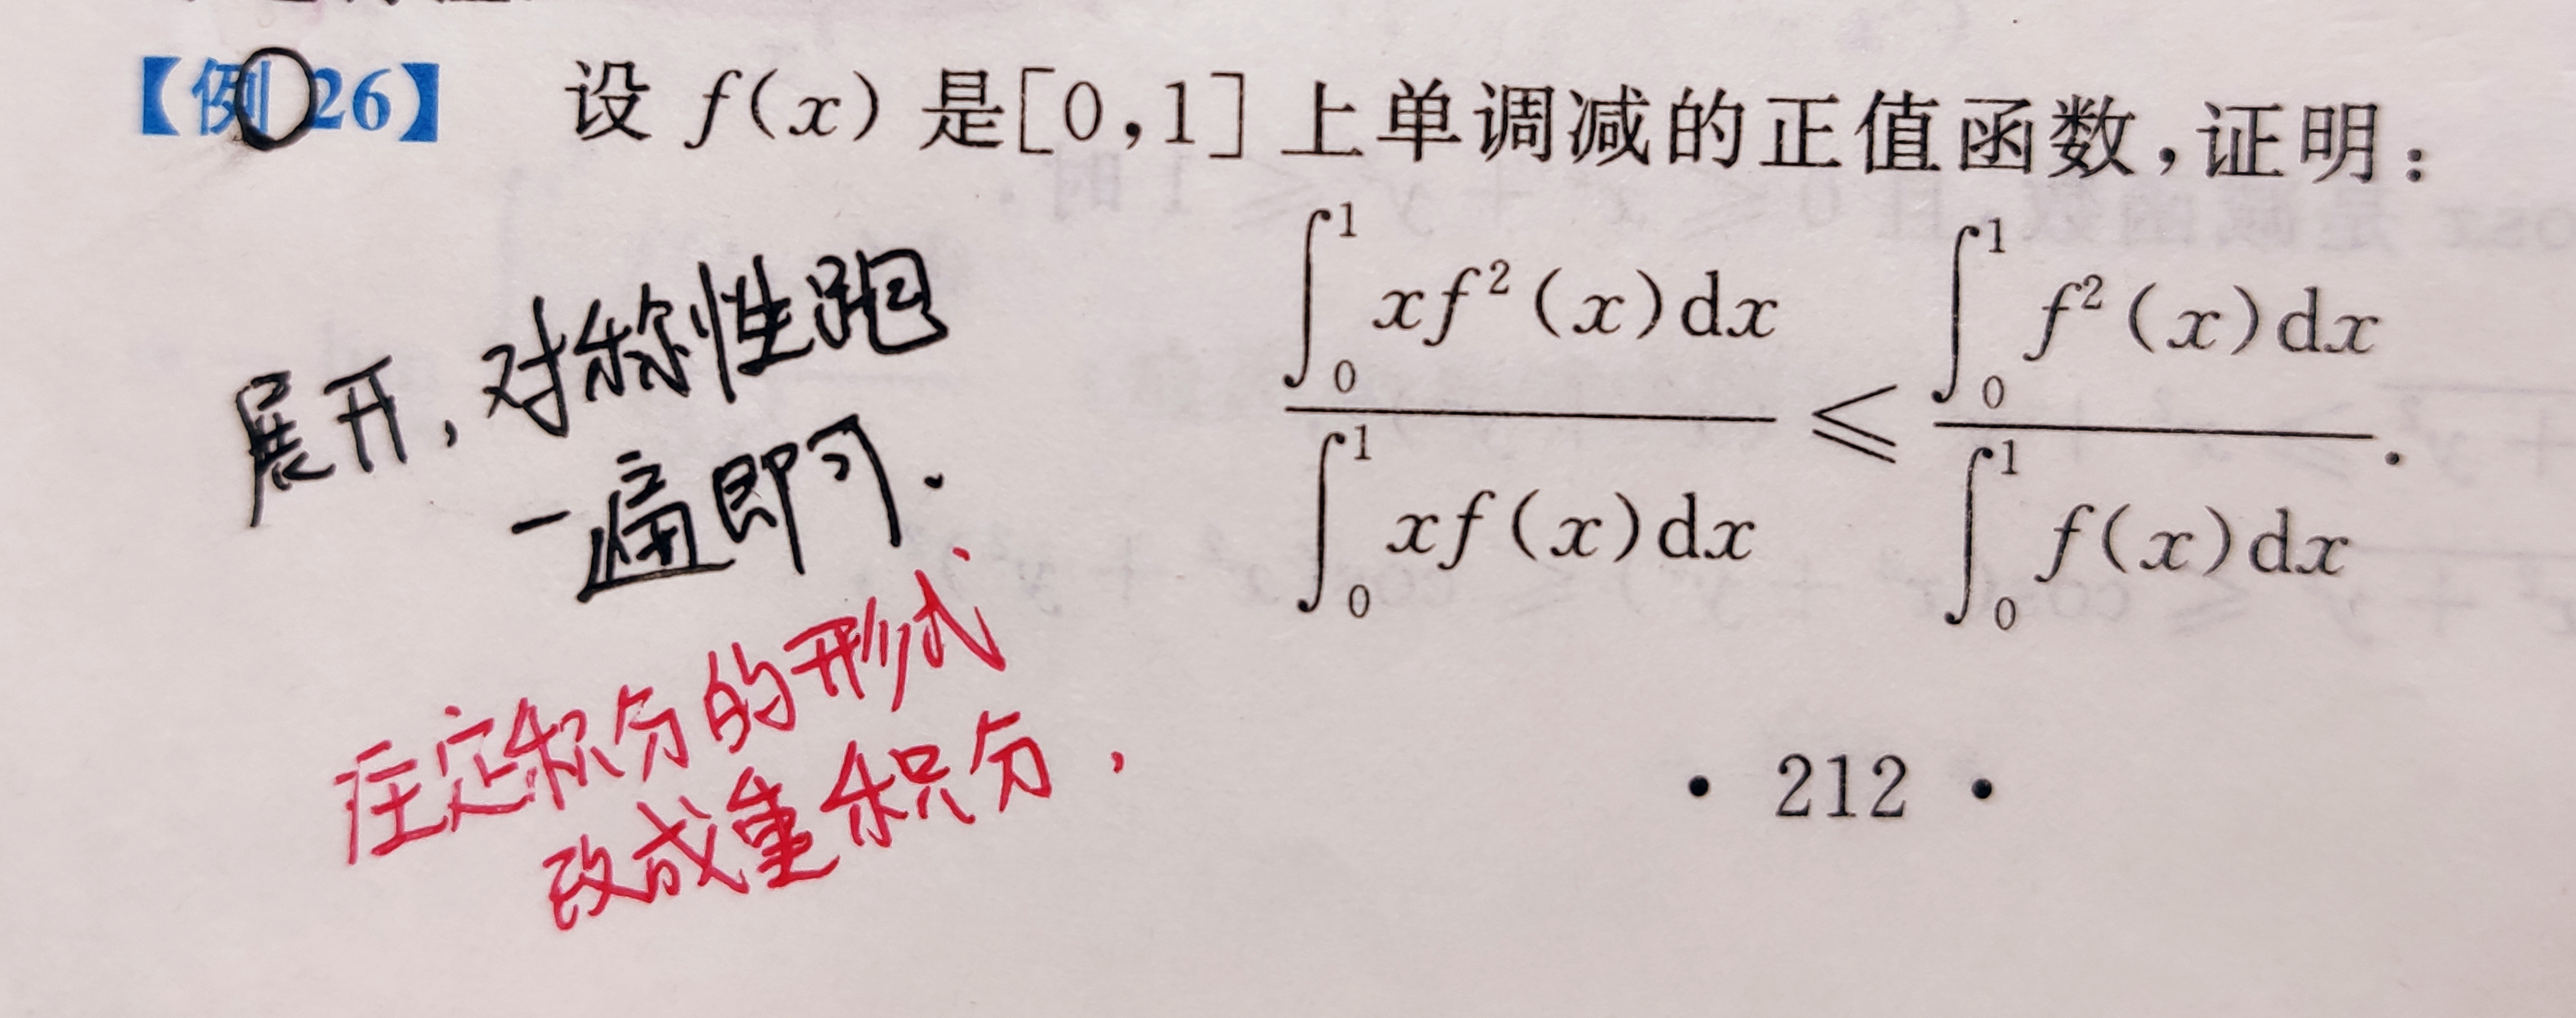 【例 26】 设 f(x) 是[0,1] 上单调减的正值函数,证明:
\frac{\int_0^1 xf^2(x)dx}{\int_0^1 xf(x)dx} ≤ \frac{\int_0^1 f^2(x)dx}{\int_0^1 f(x)dx}.
展开,对称性跑
一遍即可.
在定积分的形式
改成重积分.
· 212 ·